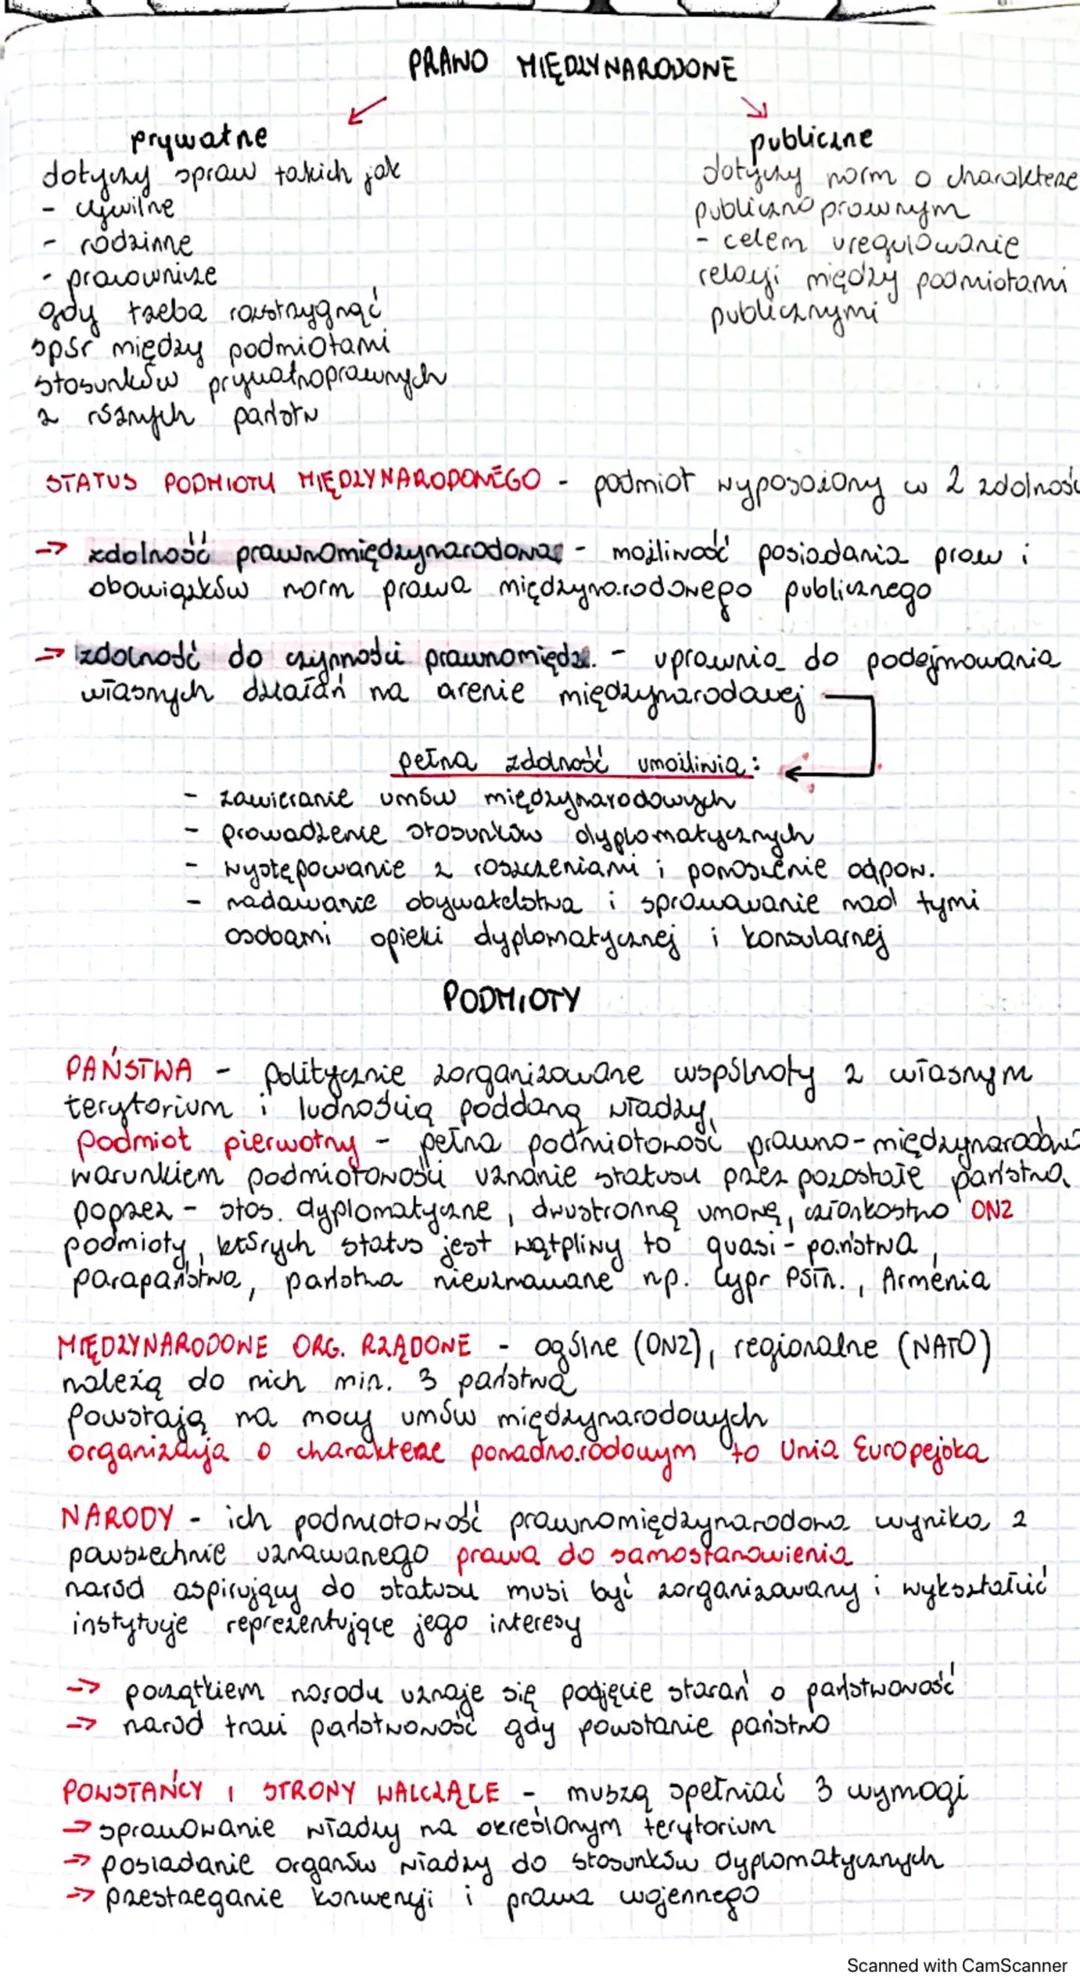 PRAWO MIĘDZYNARODOWE
prywatne
dotyczy spraw takich jak
- cywilne
- rodzinne
- pracownicze
gdy trzeba rozstrzygnąć
spór między podmiotami
stosunków prywatnoprawnych
z różnych państw
publiczne
dotyczy norm o charakterze
publiczno prawnym
- celem uregulowanie
relacji między podmiotami
publicznymi
STATUS PODMIOTU MIĘDZYNARODOWEGO - podmiot wyposażony w 2 zdolności
→ zdolność prawnomiędzynarodowa - możliwość posiadania praw i
obowiązków norm prawa międzynarodowego publicznego
→ zdolność do czynności prawnomiędz. - uprawnia do podejmowania
własnych działań na arenie międzynarodowej
pełna zdolność umożliwia:
- zawieranie umów międzynarodowych
- prowadzenie stosunków dyplomatycznych
- występowanie z roszczeniami i ponoszenie odpow.
- nadawanie obywatelstwa i sprawowanie nad tymi
osobami opieki dyplomatycznej i konsularnej
PODMIOTY
PAŃSTWA - politycznie zorganizowane wspólnoty z własnym
terytorium i ludnością poddaną władzy.
Podmiot pierwotny - pełna podmiotowość prawno-międzynarodowa
warunkiem podmiotowości uznanie statusu przez pozostałe państwa,
poprzez - stos. dyplomatyczne, dwustronną umowę, członkostwo ONZ
podmioty, których status jest wątpliwy to quasi-państwa,
parapaństwa, państwa nieuznawane np. Cypr Półn., Armenia
MIĘDZYNARODOWE ORG. RZĄDOWE - ogólne (ONZ), regionalne (NATO)
należą do nich min. 3 państwa
Powstają na mocy umów międzynarodowych
organizacja o charakterze ponadnarodowym to Unia Europejska
NARODY - ich podmiotowość prawnomiędzynarodowa wynika z
powszechnie uznawanego prawa do samostanowienia
naród aspirujący do statusu musi być zorganizowany i wykształcić
instytucje reprezentujące jego interesy
→ początkiem narodu uznaje się podjęcie starań o państwowość
→ naród traci państwowość gdy powstanie państwo
POWSTAŃCY I STRONY WALCZĄCE - muszą spełniać 3 wymogi
→ sprawowanie władzy na określonym terytorium
→ posiadanie organów władzy do stosunków dyplomatycznych
→ przestrzeganie konwencji i prawa wojennego
Scanned with CamScanner